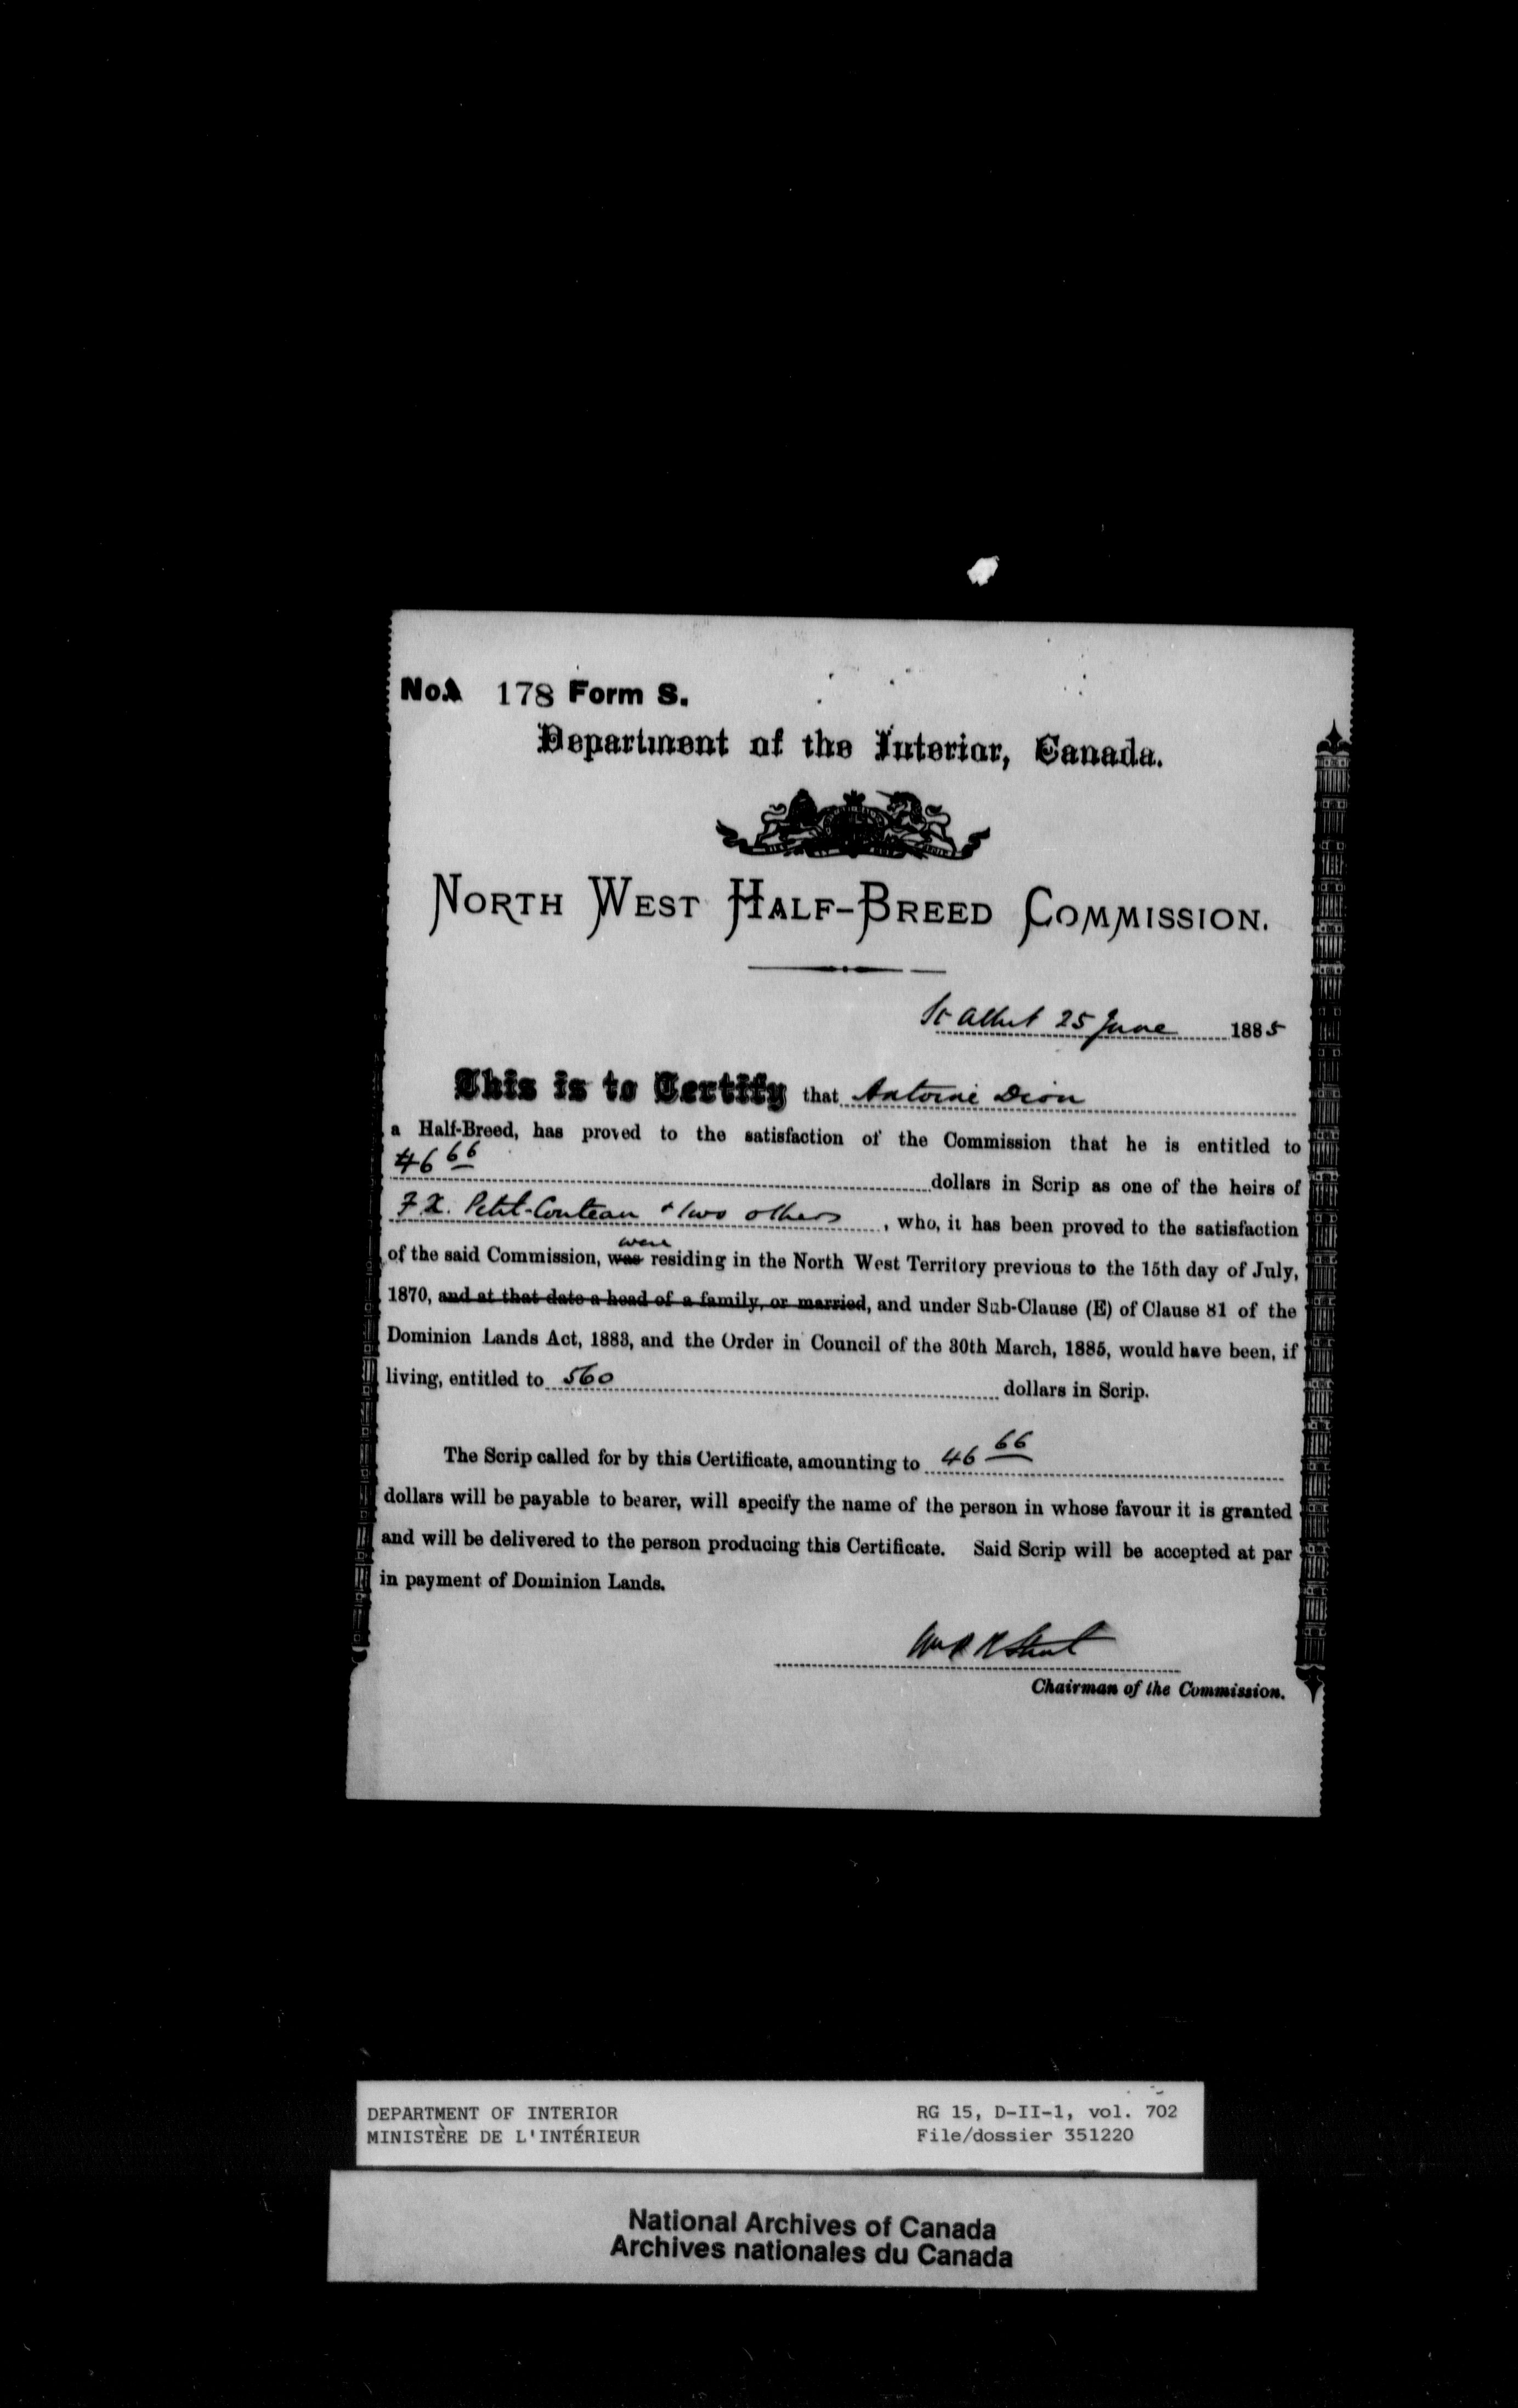 No. 178 Form S.
Department of the Interior, Canada.
NORTH WEST HALF-BREED COMMISSION.
St Albert 25 June 1885
This is to Certify that Antoine Dion
a Half-Breed, has proved to the satisfaction of the Commission that he is entitled to
46 66 dollars in Scrip as one of the heirs of
F. X. Petit-Couteau & two others, who, it has been proved to the satisfaction
were
of the said Commission, was residing in the North West Territory previous to the 15th day of July,
1870, and at that date a head of a family, or married, and under Sub-Clause (E) of Clause 81 of the
Dominion Lands Act, 1883, and the Order in Council of the 30th March, 1885, would have been, if
living, entitled to 560 dollars in Scrip.
The Scrip called for by this Certificate, amounting to 46 66
dollars will be payable to bearer, will specify the name of the person in whose favour it is granted
and will be delivered to the person producing this Certificate. Said Scrip will be accepted at par
in payment of Dominion Lands.
Chairman of the Commission.
DEPARTMENT OF INTERIOR
MINISTÈRE DE L'INTÉRIEUR
RG 15, D-II-1, vol. 702
File/dossier 351220
National Archives of Canada
Archives nationales du Canada